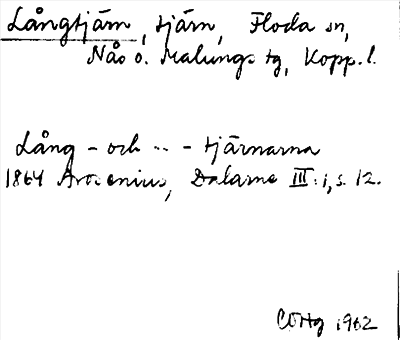 Långtjärn, tjärn, Floda sn,
Nås o. Malungs tg, Kopp. l.
Lång - och ... - tjärnarna
1864 Arosenius, Dalarne III: 1, s. 12.
1962